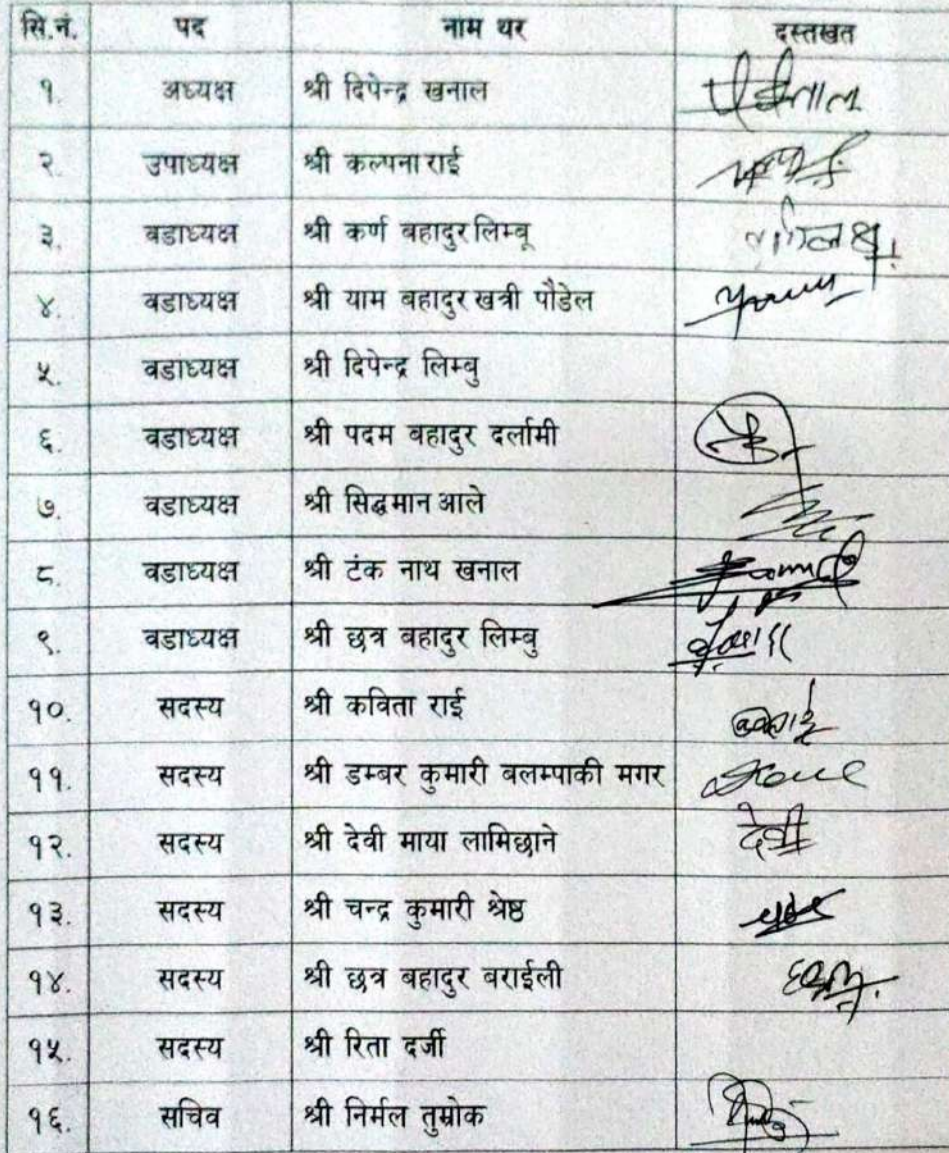 सि.नं. पद नाम थर दस्तखत
१. अध्यक्ष श्री दिपेन्द्र खनाल
२. उपाध्यक्ष श्री कल्पना राई
३. वडाध्यक्ष श्री कर्ण बहादुर लिम्बू
४. वडाध्यक्ष श्री याम बहादुर खत्री पौडेल
५. वडाध्यक्ष श्री दिपेन्द्र लिम्बु
६. वडाध्यक्ष श्री पदम बहादुर दर्लामी
७. वडाध्यक्ष श्री सिद्धमान आले
८. वडाध्यक्ष श्री टंक नाथ खनाल
९. वडाध्यक्ष श्री छत्र बहादुर लिम्बु
१०. सदस्य श्री कविता राई
११. सदस्य श्री डम्बर कुमारी बलम्पाकी मगर
१२. सदस्य श्री देवी माया लामिछाने देवी
१३. सदस्य श्री चन्द्र कुमारी श्रेष्ठ
१४. सदस्य श्री छत्र बहादुर बराईली
१५. सदस्य श्री रिता दर्जी
१६. सचिव श्री निर्मल तुम्रोक